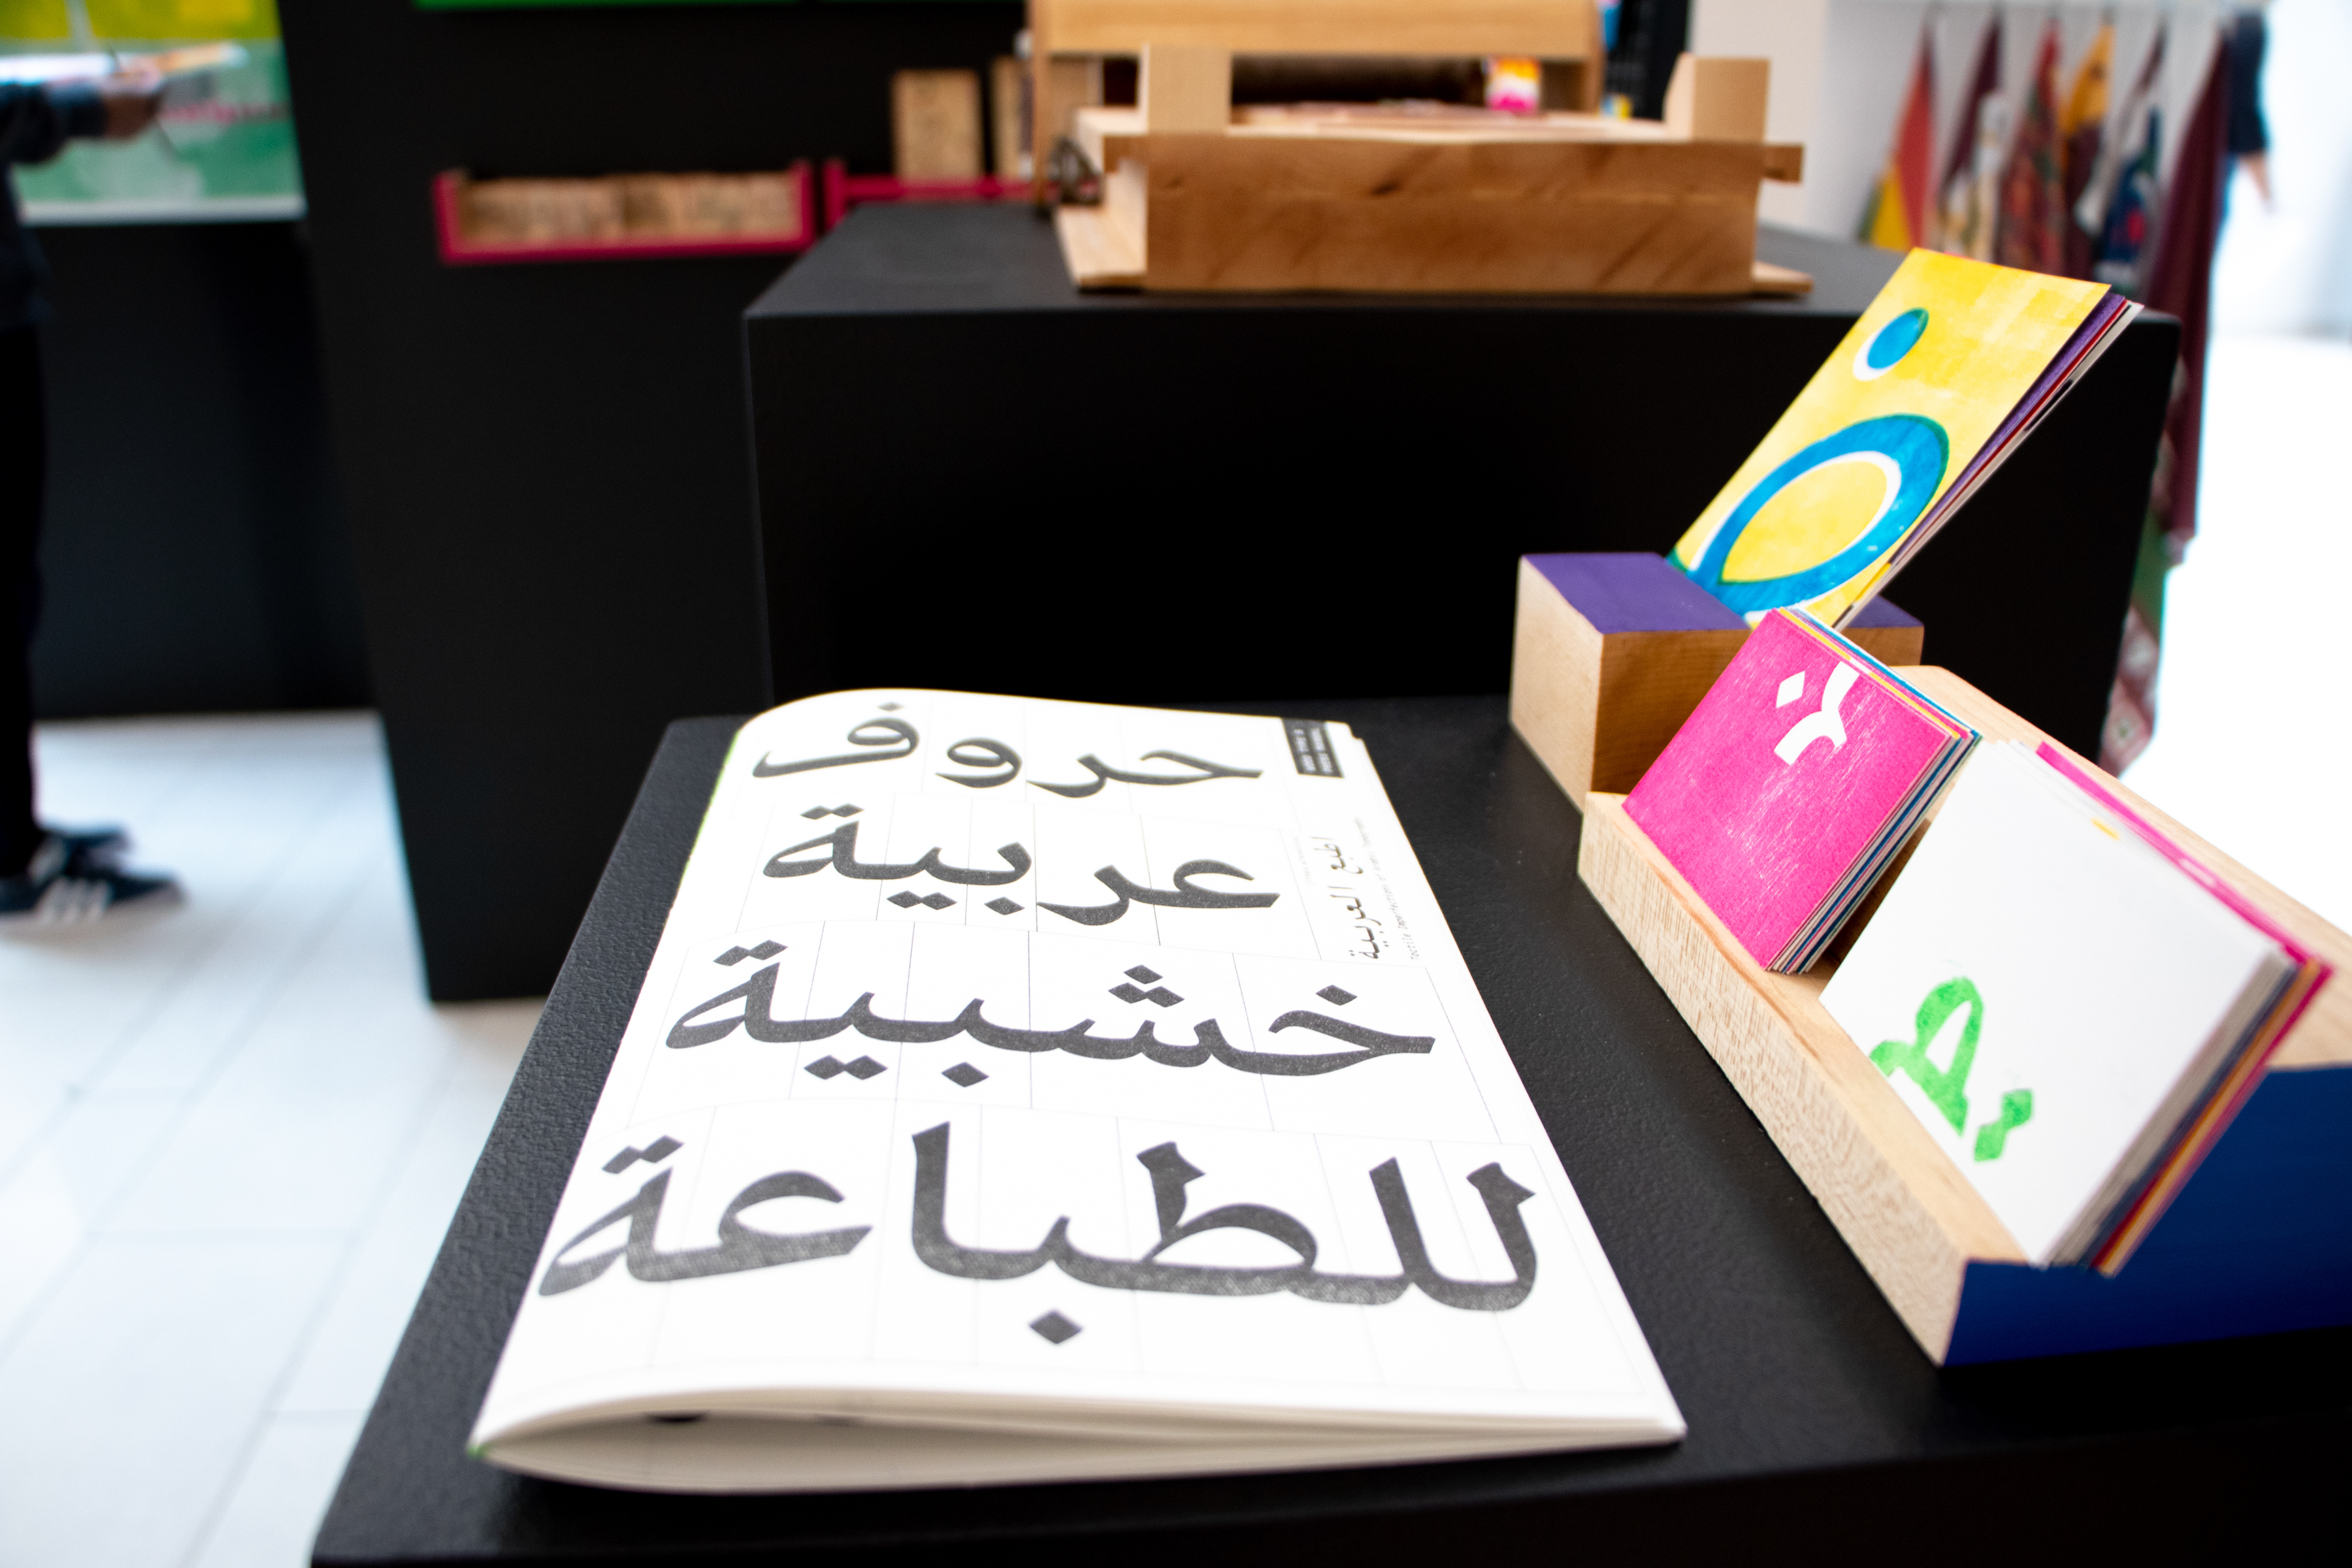 حروف
عربية
خشبية
للطباعة
اطبع العربية